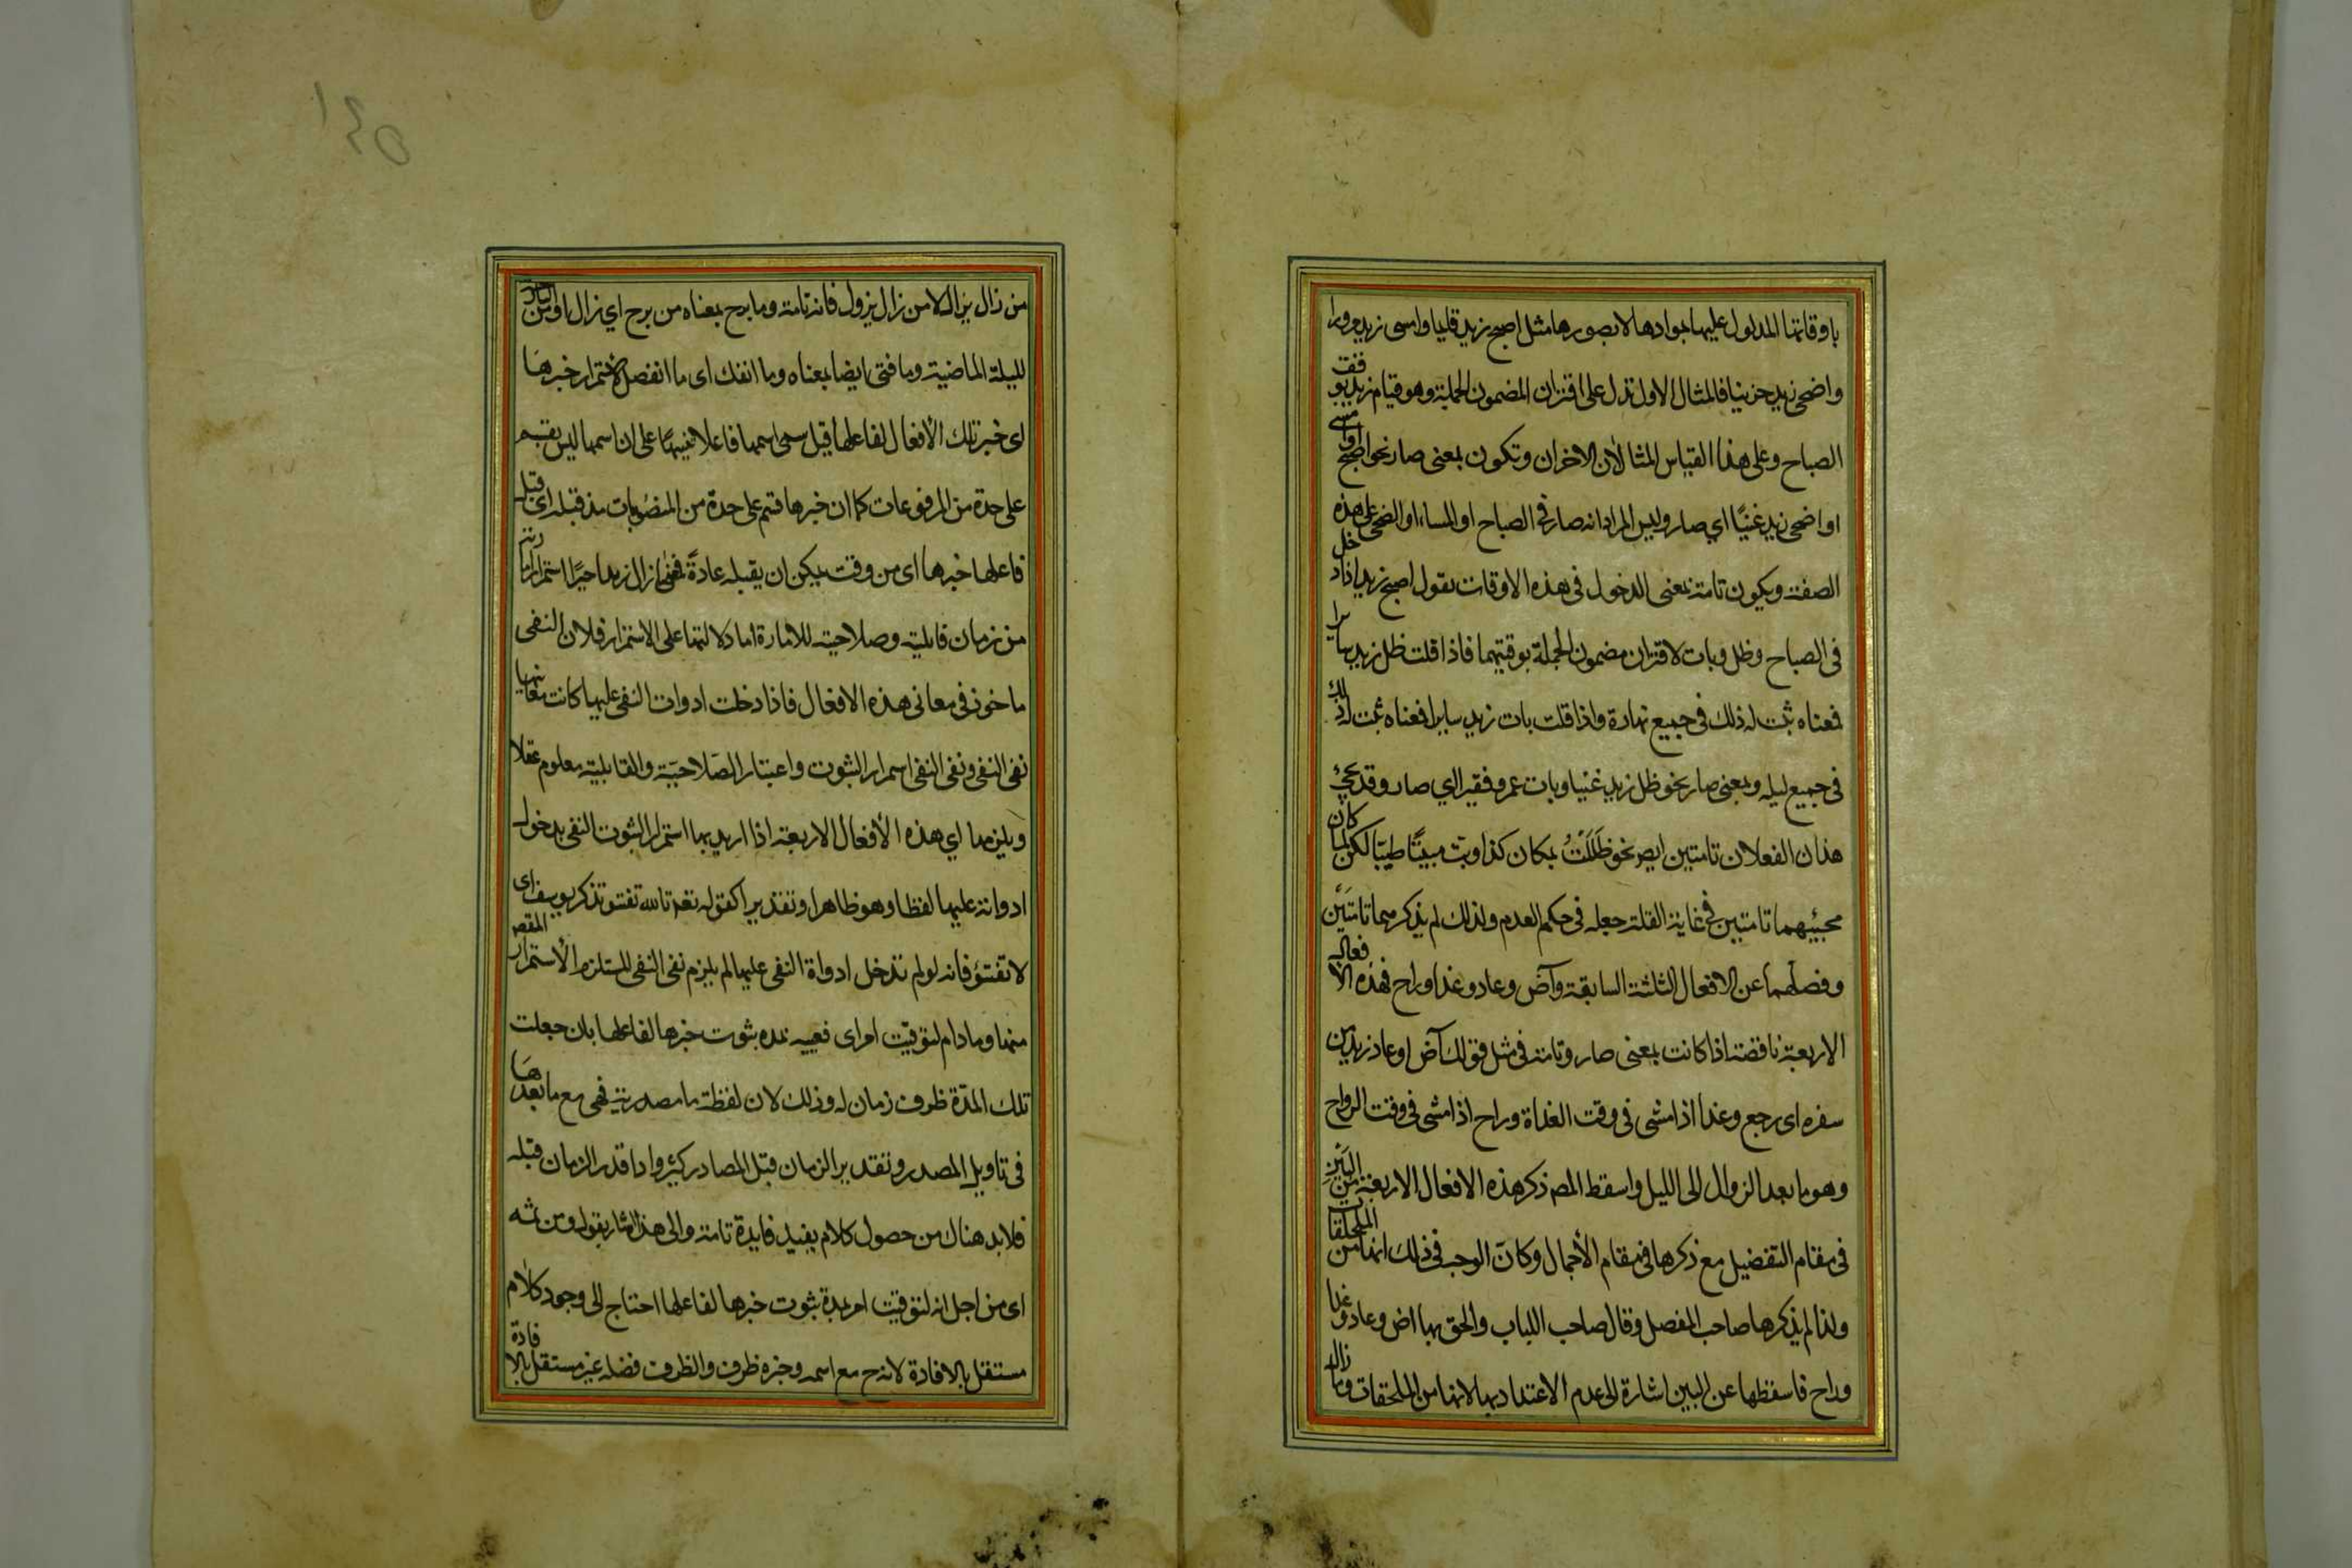 باوقاتها المدلول عليها بموادها لا بصورها مثل اصبح زيد قايما وامسى زيد مسرورا
واضحى زيد حزينا فالمثال الاول تدل على اقتران المضمون الجملة وهو قيام زيد بوقت
الصباح وعلى هذا القياس المثالان الاخران وتكون بمعنى صار نحو اصبح او امسى
او اضحى زيد غنيًا اي صار وليس المراد انه صار في الصباح او المساء او الضحى على هذه
الصفة ويكون تامة بمعنى الدخول في هذه الاوقات تقول اصبح زيد اذا دخل
في الصباح وظل وبات لاقتران مضمون الجملة بوقتيهما فاذا قلت ظل زيد سايرا
فمعناه ثبت له ذلك في جميع نهاره واذا قلت بات زيد سايرا فمعناه ثبت له ذلك
في جميع ليله وبمعنى صار نحو ظل زيد غنيا وبات عمرو فقيرا اي صار وقد يجئ
هذان الفعلان تامتين ايض نحو ظَلَلْتُ بمكان كذا وبت مبيتًا طيبًا لكن لما كان
مجيئهما تامتين في غاية القلة جعله في حكم العدم ولذلك لم يذكرهما تامتين
وفصلهما عن الافعال الثلثة السابقة وآض وعاد وغدا وراح فهذه الافعال
الاربعة ناقصة اذا كانت بمعنى صار وتامة في مثل قولك آض او عاد زيد من
سفره اى رجع وغدا اذا مشى في وقت الغداة وراح اذا مشى في وقت الرواح
وهو ما بعد الزوال الى الليل واسقط المص ذكر هذه الافعال الاربعة من البين
في مقام التفضيل مع ذكرها في مقام الأجمال وكان الوجه في ذلك انها من الملحقا
ولذا لم يذكرها صاحب المفصل وقال صاحب اللباب والحق بها اض وعاد وغدا
وراح فاسقطها عن البين اشارة الى عدم الاعتداد بها لانها من الملحقات وما زال
من زال يزال لا من زال يزول فانه تامة وما برح بمعناه من برح اي زال ومن البارحة
لليلة الماضية وما فتئ ايضا بمعناه وما انفك اى ما انفصل لاستمرار خبرها
اى خبر تلك الأفعال لفاعلها قيل سمى اسمها فاعلا تنبيهًا على ان اسمها ليس بقسم
على حدة من المرفوعات كما ان خبرها قسم على حدة من المنصوبات مذ قبله اى قبل
فاعلها خبرها اى من وقت يمكن ان يقبله عادةً فمعنى ما زال زيد اميرًا استمرار امارته
من زمان قابلية وصلاحيته للامارة اما دلالتها على الاستمرار فلان النفى
ماخوذ في معانى هذه الافعال فاذا دخلت ادوات النفى عليها كانت معانيها
نفى النفى ونفى النفى استمرار الثبوت واعتبار الصَلاحيَة والقابلية معلوم عقلا
ويلزمها اي هذه الأفعال الاربعة اذا اريد بها استمرار الثبوت النفى بدخول
ادواته عليها لفظا وهو ظاهر او تقديرا كقوله تعه تالله تفتؤ تذكر يوسف اى
لا تفتؤ فانه لو لم تدخل ادواة النفى عليها لم يلزم نفى النفى المستلزم الأستمرار المقص
منها وما دام لتوقيت امر اى تعيينه بمدة ثبوت خبرها لفاعلها بان جعلت
تلك المدّة ظرف زمان له وذلك لان لفظة ما مصدرية فهي مع ما بعدها
في تاويل المصدر وتقدير الزمان قبل المصادر كثير واذا قدر الزمان قبله
فلا بد هناك من حصول كلام يفيد فايدة تامة والى هذا اشار بقوله ومن ثمه
اى من اجل انه لتوقيت امر بمدة ثبوت خبرها لفاعلها احتاج الى وجود كلام
مستقل بالافادة لانه ح مع اسمه وخبره ظرف والظرف فضلة غير مستقل بالافادة